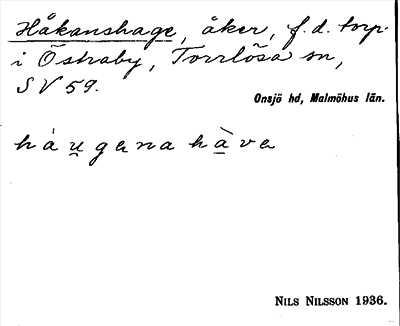 Håkanshage, åker, f. d. torp.
i Östraby, Torrlösa sn,
SV 59.
Onsjö hd, Malmöhus län.
hȧu̯gɐna hàvɐ
NILS NILSSON 1936.